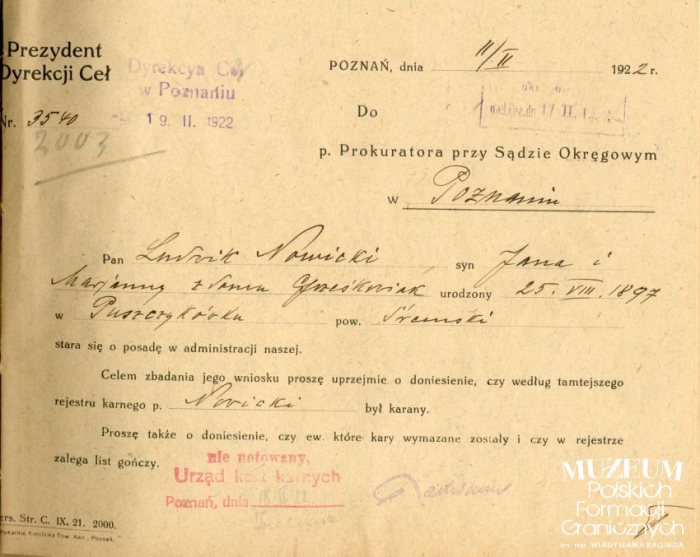 Prezydent
Dyrekcji Ceł
Nr. 3540
2003
Dyrekcya Ceł
w Poznaniu
19. II. 1922
POZNAŃ, dnia 11/II 1922 r.
nadesz. do 17 II.
Do
p. Prokuratora przy Sądzie Okręgowym
w Poznaniu
Pan Ludwik Nowicki syn Jana i
Marjanny z domu urodzony 25. VIII. 1897
w Puszczykówku pow. Śremski
stara się o posadę w administracji naszej.
Celem zbadania jego wniosku proszę uprzejmie o doniesienie, czy według tamtejszego
rejestru karnego p. Nowicki był karany.
Proszę także o doniesienie, czy ew. które kary wymazane zostały i czy w rejestrze
zalega list gończy.
nie notowany,
Urząd kart karnych
Poznań, dnia 18 II 22
ers. Str. C. IX. 21. 2000.
Katolicka Tow. Akc., Poznań.
MUZEUM
Polskich
Formacji
Granicznych
im. mjr. WŁADYSŁAWA RAGINISA